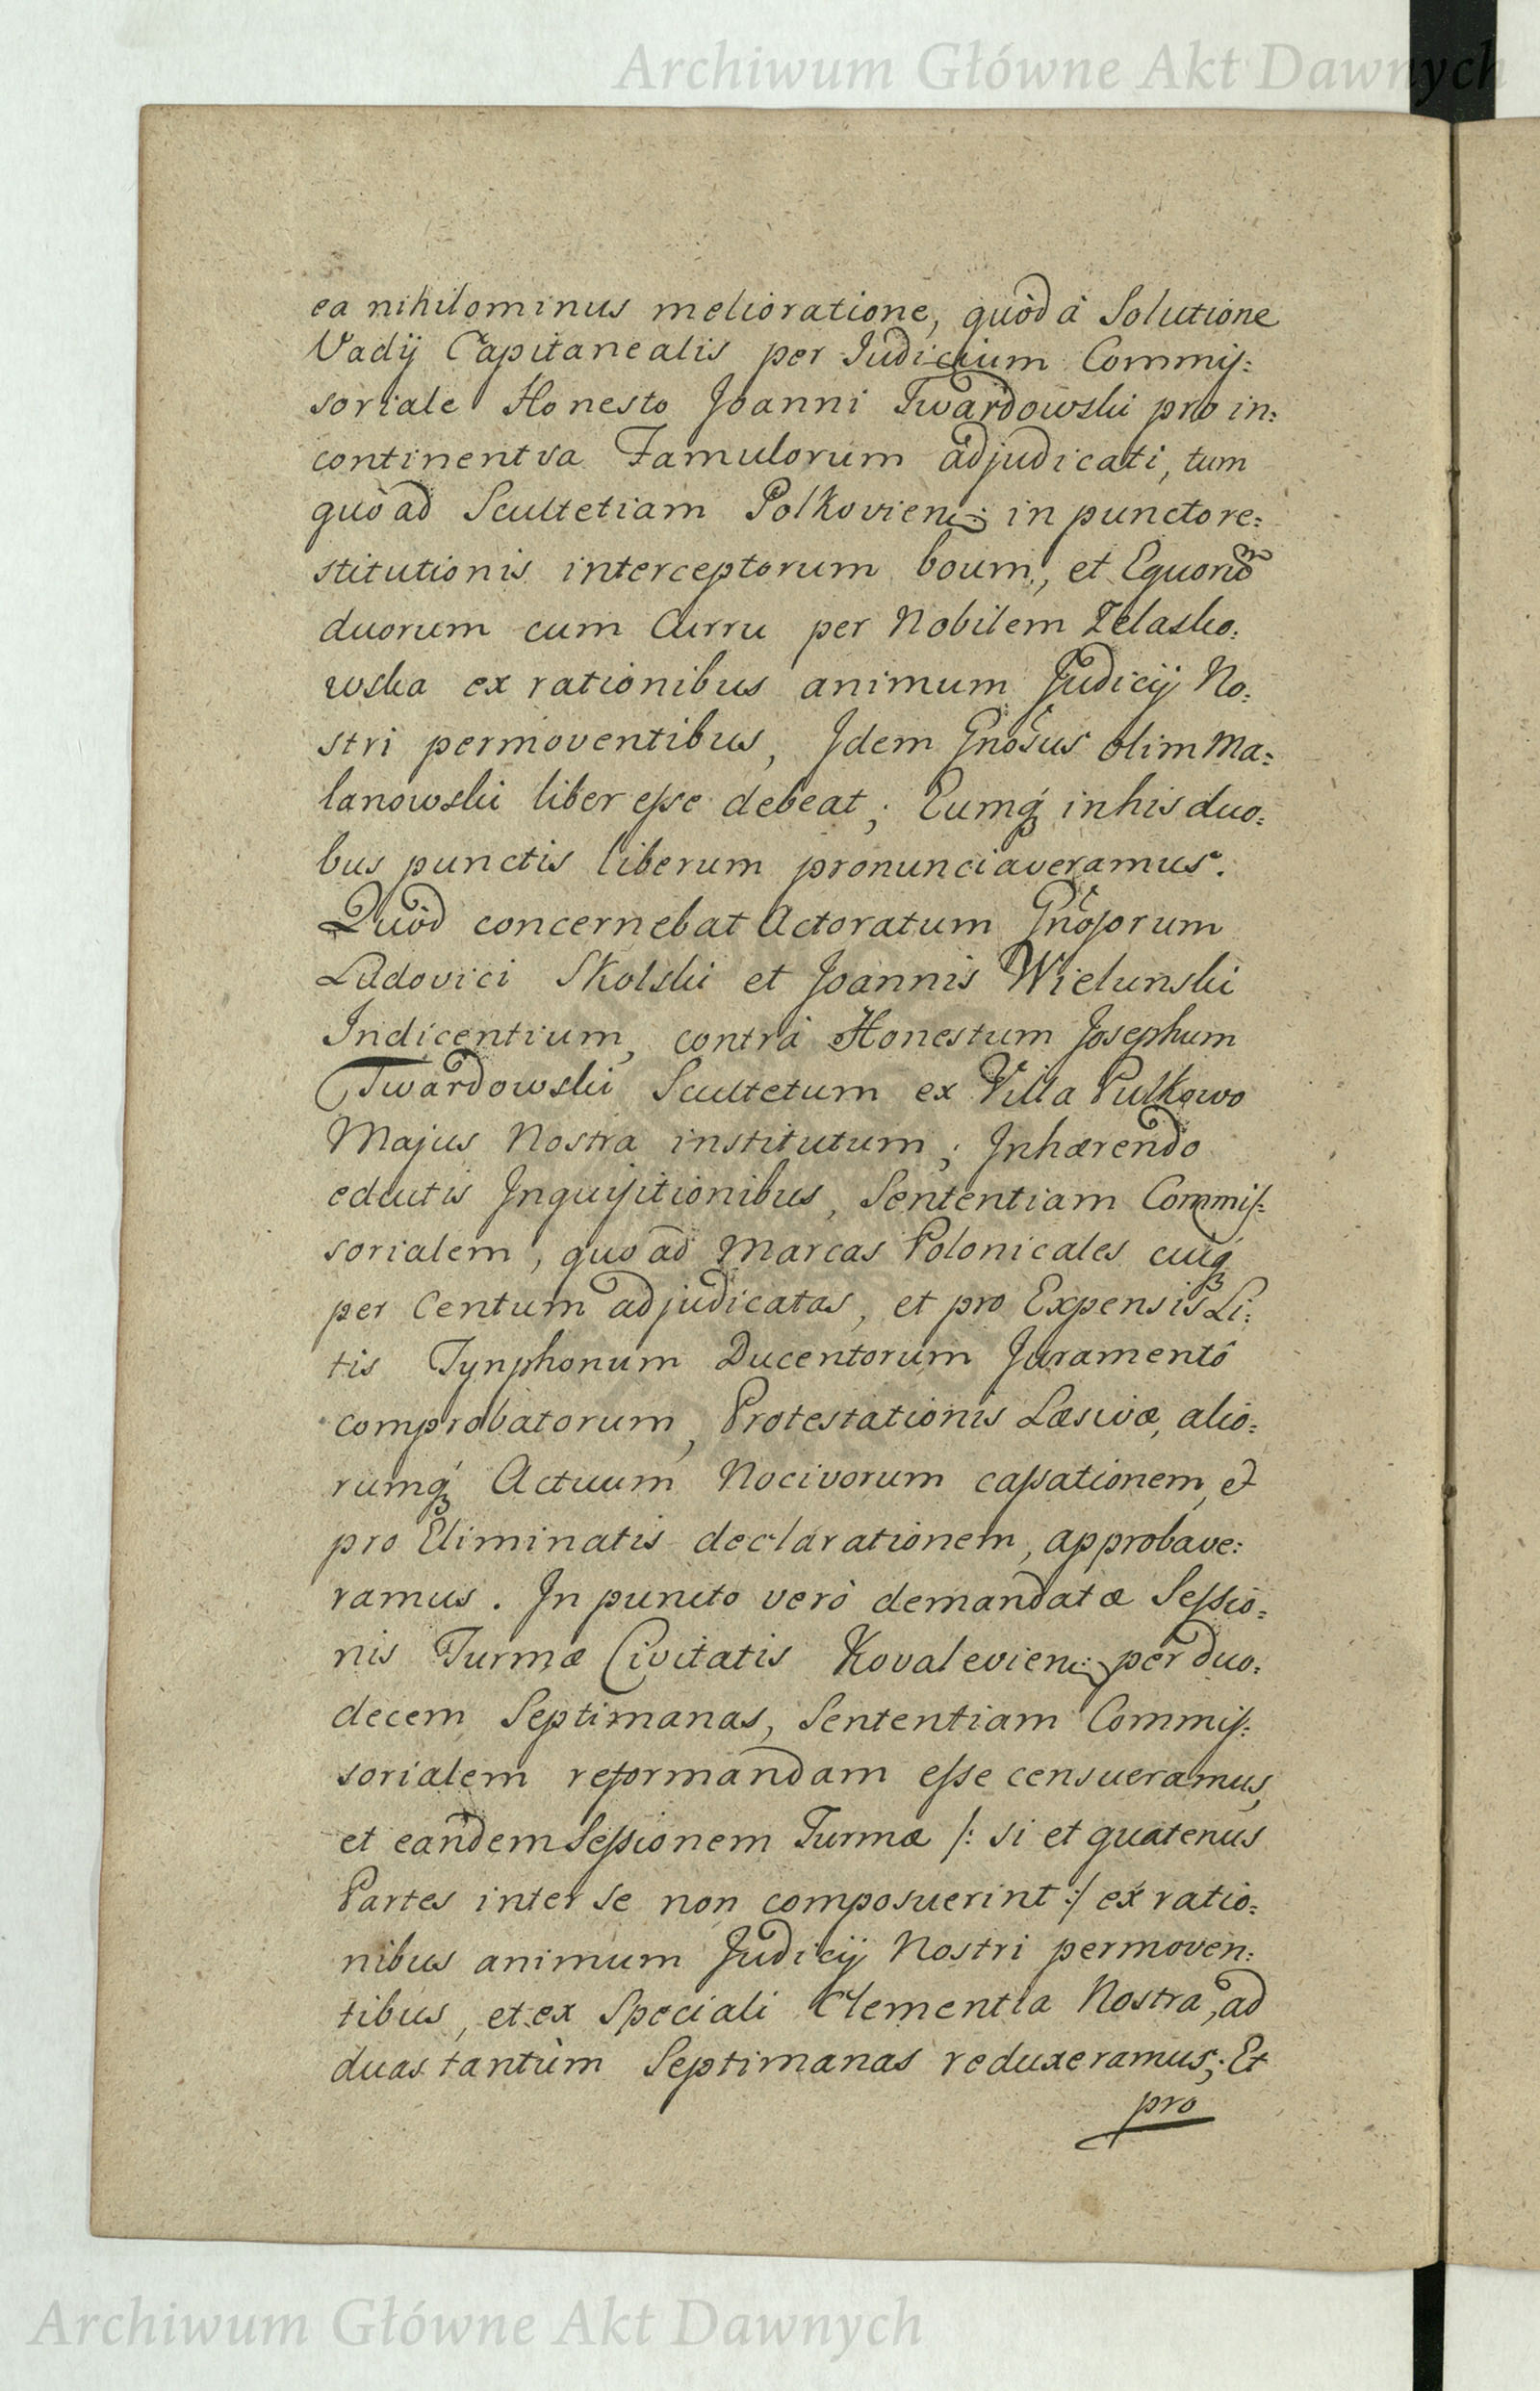 Archiwum Główne Akt Dawnych
ea nihilominus melioratione, quòd à Solutione
Vadij Capitanealis per Judicium Commis:
soriale Honesto Joanni Twardowski pro in:
continentia Famulorum adjudicati, tum
quò ad Scultetiam Polkovien: in puncto re:
stitutionis interceptorum boum, et Equorũ
duorum cum Curru per Nobilem Zelasko:
wska ex rationibus animum Judicij No:
stri permoventibus, Idem Gnosus olim Ma:
lanowski liber esse debeat; Eumq́ in his duo:
bus punctis liberum pronunciaveramus.
Quòd concernebat Actoratum Gnosorum
Ludovici Skolski et Joannis Wielunski
Indicentium, contrà Honestum Josephum
Twardowski Scultetum ex Villa Pulkowo
Majus Nostra institutum; Inhærendo
eductis Inquisitionibus, Sententiam Commis:
sorialem, quo ad Marcas Polonicales cuiq́
per Centum adjudicatas, et pro Expensis Li:
tis Tynphonum Ducentorum Juramentô
comprobatorum, Protestationis Læsivæ, alio:
rumq́ Actuum Nocivorum cassationem, et
pro Eliminatis declarationem, approbave:
ramus. In puncto verò demandatæ Sessio:
nis Turmæ Civitatis Kovalevien: per duo:
decem Septimanas, Sententiam Commis:
sorialem reformandam esse censueramus,
et eandem Sessionem Turmæ /: si et quatenus
Partes inter se non composuerint :/ ex ratio:
nibus animum Judicij Nostri permoven:
tibus, et ex Speciali Clementia Nostra, ad
duas tantùm Septimanas reduxeramus; Et
pro
Archiwum Główne Akt Dawnych